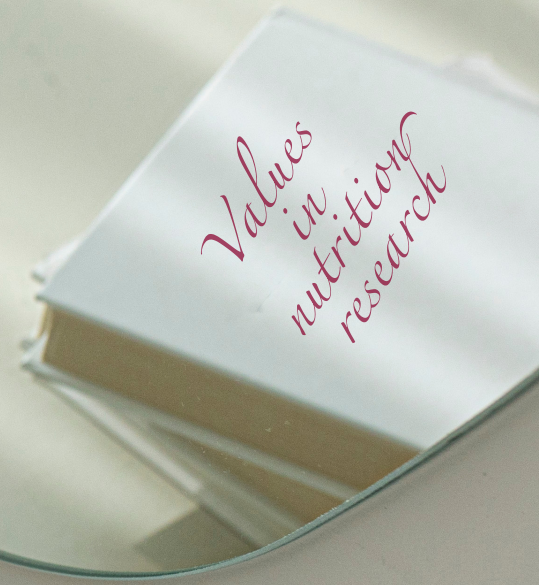 Values
in
nutrition
research